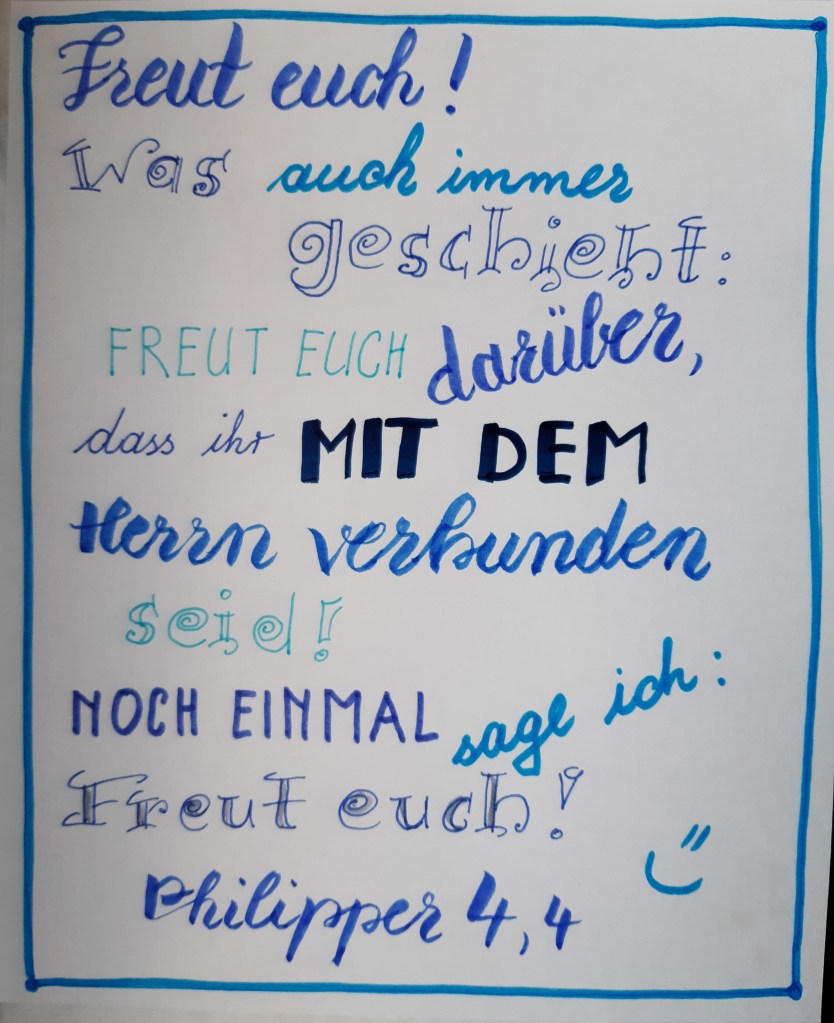 Freut euch!
Was auch immer
geschieht:
FREUT EUCH darüber,
dass ihr MIT DEM
Herrn verbunden
seid!
NOCH EINMAL sage ich:
Freut euch!
Philipper 4,4